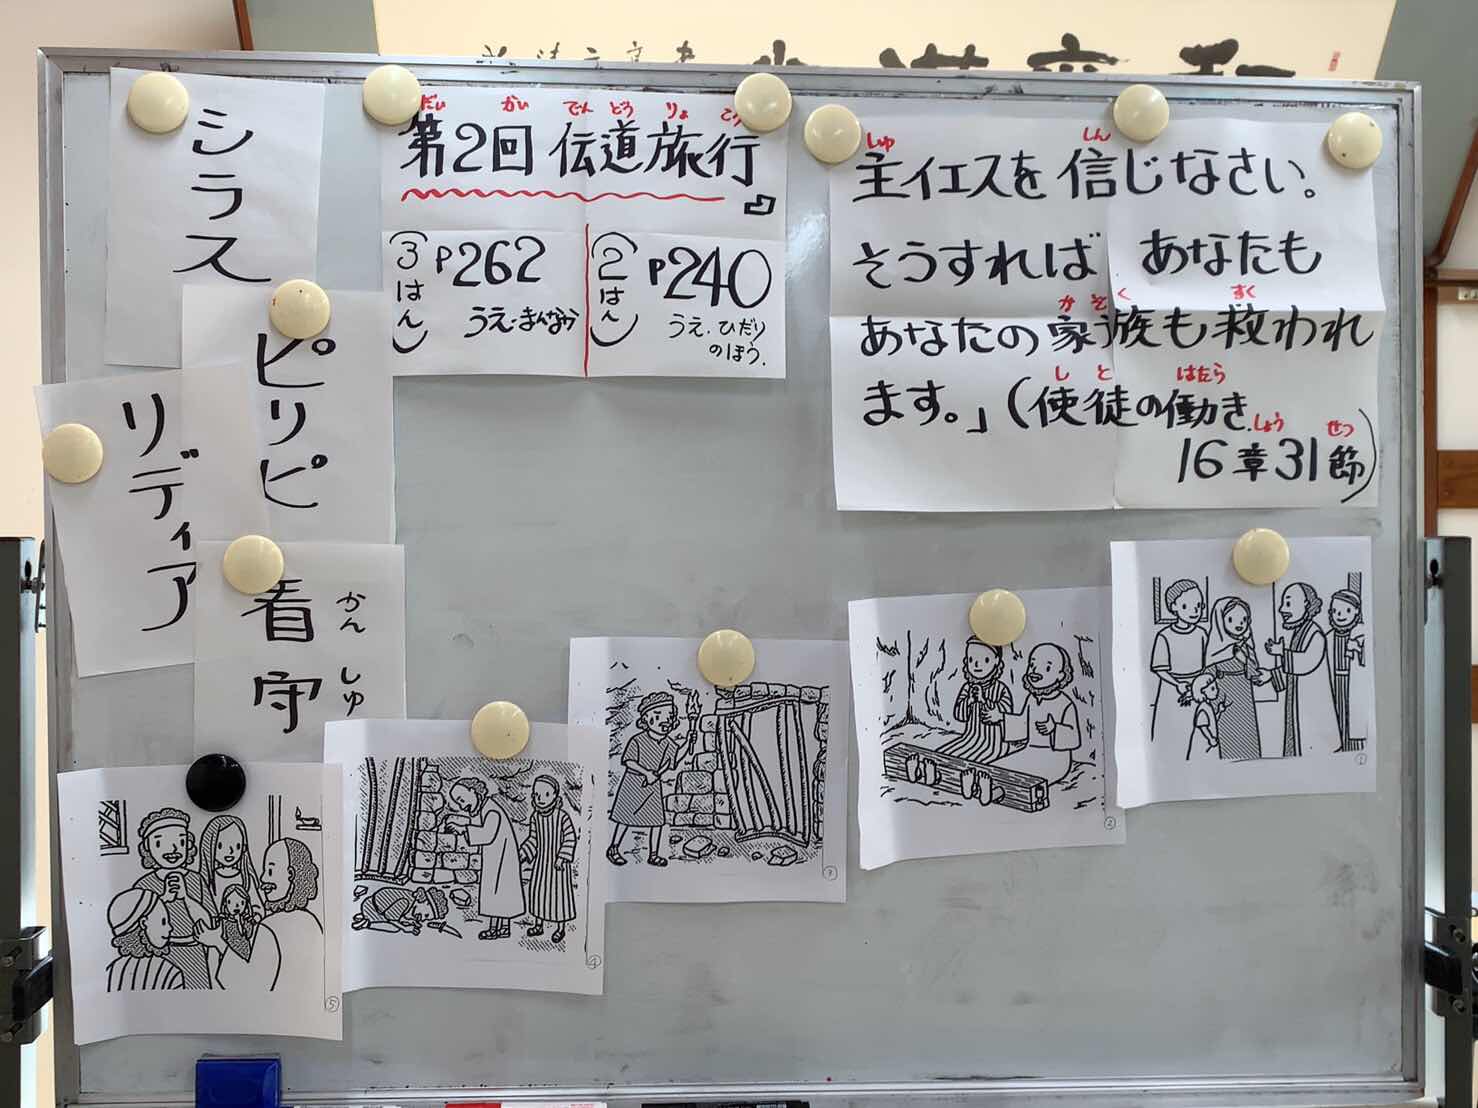 シラス
ピリピ
リディア
かんしゅ
看守
だい かい でん どう りょ こう
第2回 伝道旅行
(3はん)
P262
うえ・まんなか
(2はん)
P240
うえ.ひだり
のほう.
しゅ しん
主イエスを信じなさい。
そうすれば あなたも
か ぞ く すく
あなたの家族も救われ
し と はたら
ます。」(使徒の働き
しょう せつ
16章31節)
①
②
③
④
⑤